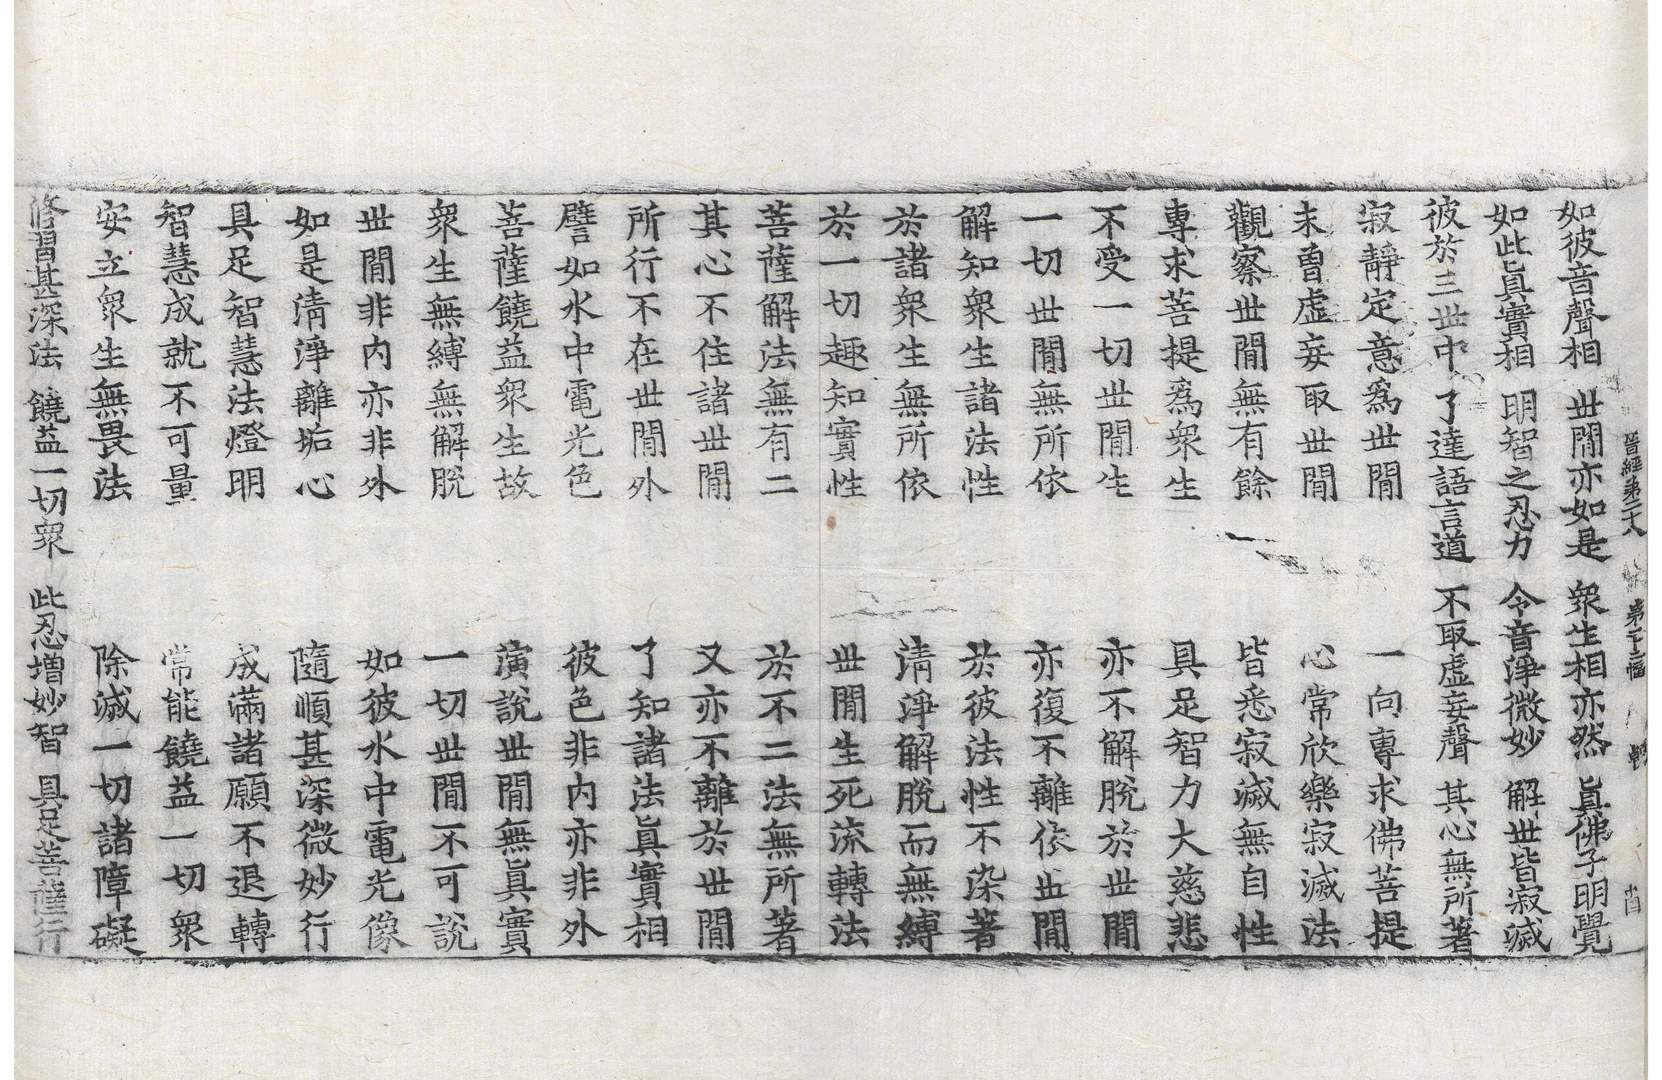 晉經第二十八 第十三幅
如彼音聲相 世間亦如是 衆生相亦然 眞佛子明覺
如此眞實相 明智之忍力 令音淨微妙 解世皆寂滅
彼於三世中 了達語言道 不取虛妄聲 其心無所著
寂靜定意爲世間 一向專求佛菩提
未曾虛妄取世間 心常欣樂寂滅法
觀察世間無有餘 皆悉寂滅無自性
專求菩提爲衆生 具足智力大慈悲
不受一切世間生 亦不解脫於世間
一切世間無所依 亦復不離依世間
解知衆生諸法性 於彼法性不染著
於諸衆生無所依 淸淨解脫而無縛
於一切趣知實性 世間生死流轉法
菩薩解法無有二 於不二法無所著
其心不住諸世間 又亦不離於世間
所行不在世間外 了知諸法眞實相
譬如水中電光色 彼色非內亦非外
菩薩饒益衆生故 演說世間無眞實
衆生無縛無解脫 一切世間不可說
世間非內亦非外 如彼水中電光像
如是淸淨離垢心 隨順甚深微妙行
具足智慧法燈明 成滿諸願不退轉
智慧成就不可量 常能饒益一切衆
安立衆生無畏法 除滅一切諸障礙
修習甚深法 饒益一切衆 此忍增妙智 具足菩薩行